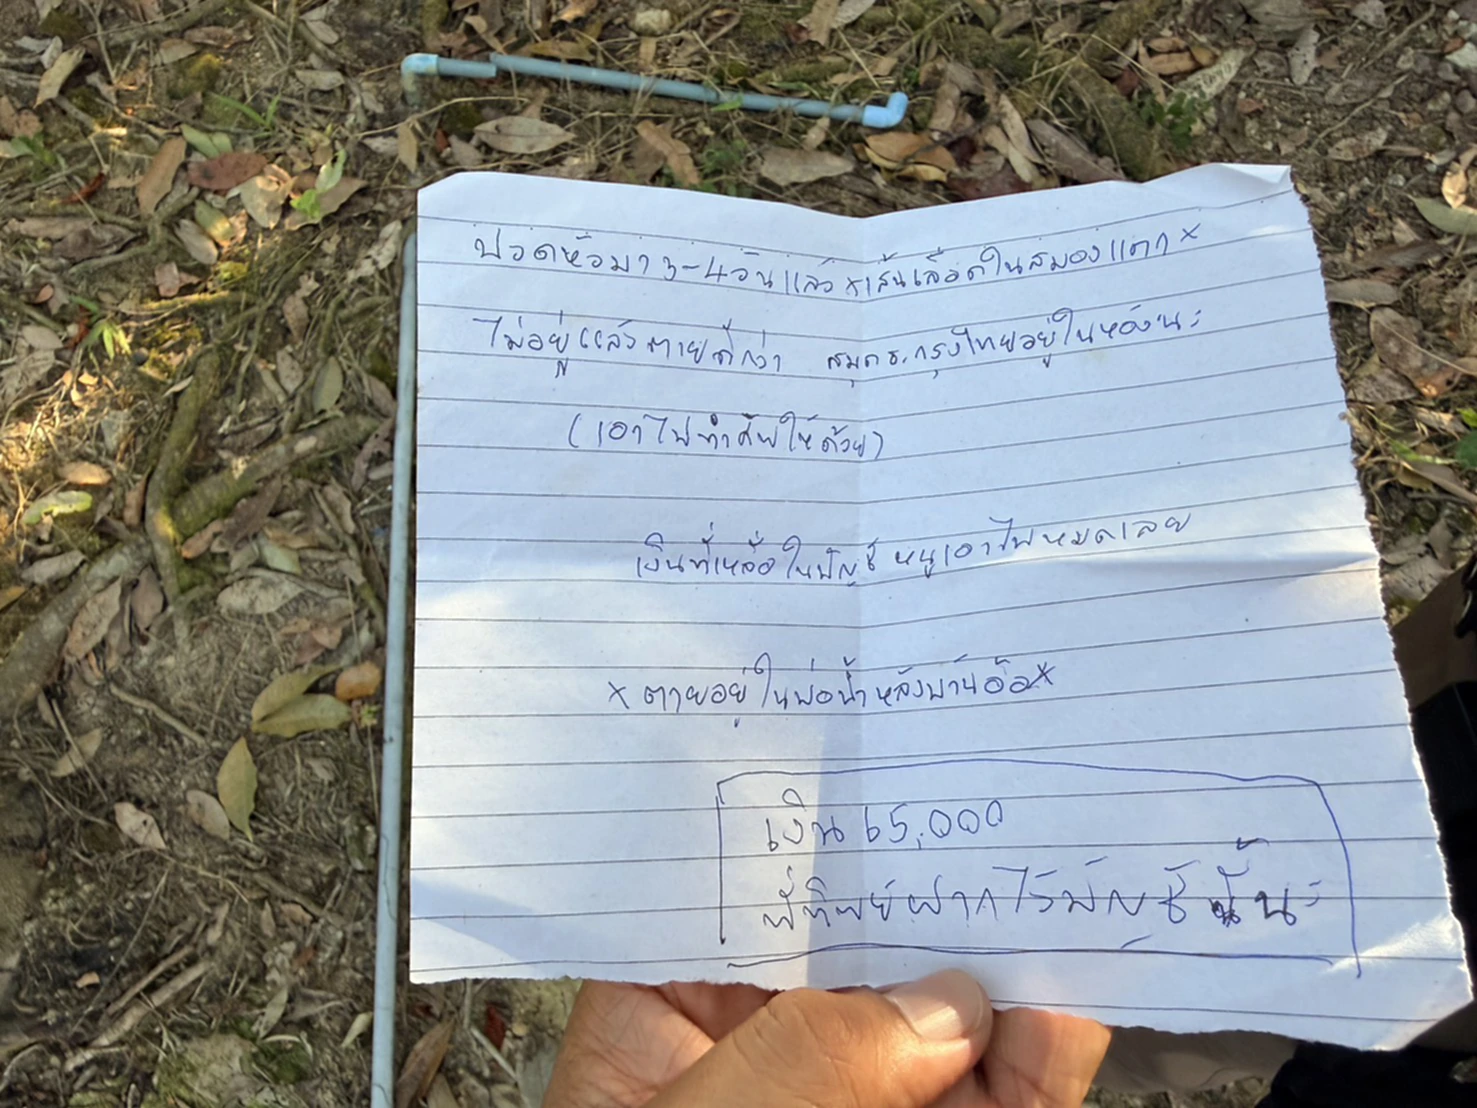 ปวดหัวมา 3-4 วันแล้ว x เส้นเลือดในสมองแตก x
ไม่อยู่แล้วตายดีกว่า สมุด ธ.กรุงไทยอยู่ในห้องนะ
(เอาไปทำศพให้ด้วย)
เงินที่เหลือในบัญชี หนูเอาไปหมดเลย
x ตายอยู่ในบ่อน้ำหลังบ้านอ้อ x
เงิน 65,000
พี่ทิพย์ฝากไว้บัญชีนั้นนะ